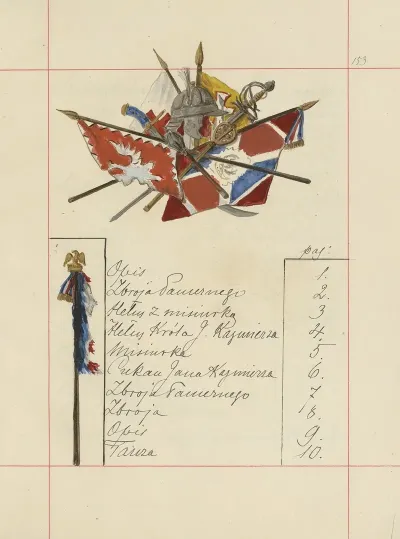 153
paj:
Opis 1.
Zbroja Pancernego 2.
Hełm z misiurką 3
Hełm Króla J. Kazimierza 4.
Misiurka 5.
Czekan Jana Kazimierza 6.
Zbroja Pancernego 7
Zbroja 8.
Opis 9.
Tarcza 10.